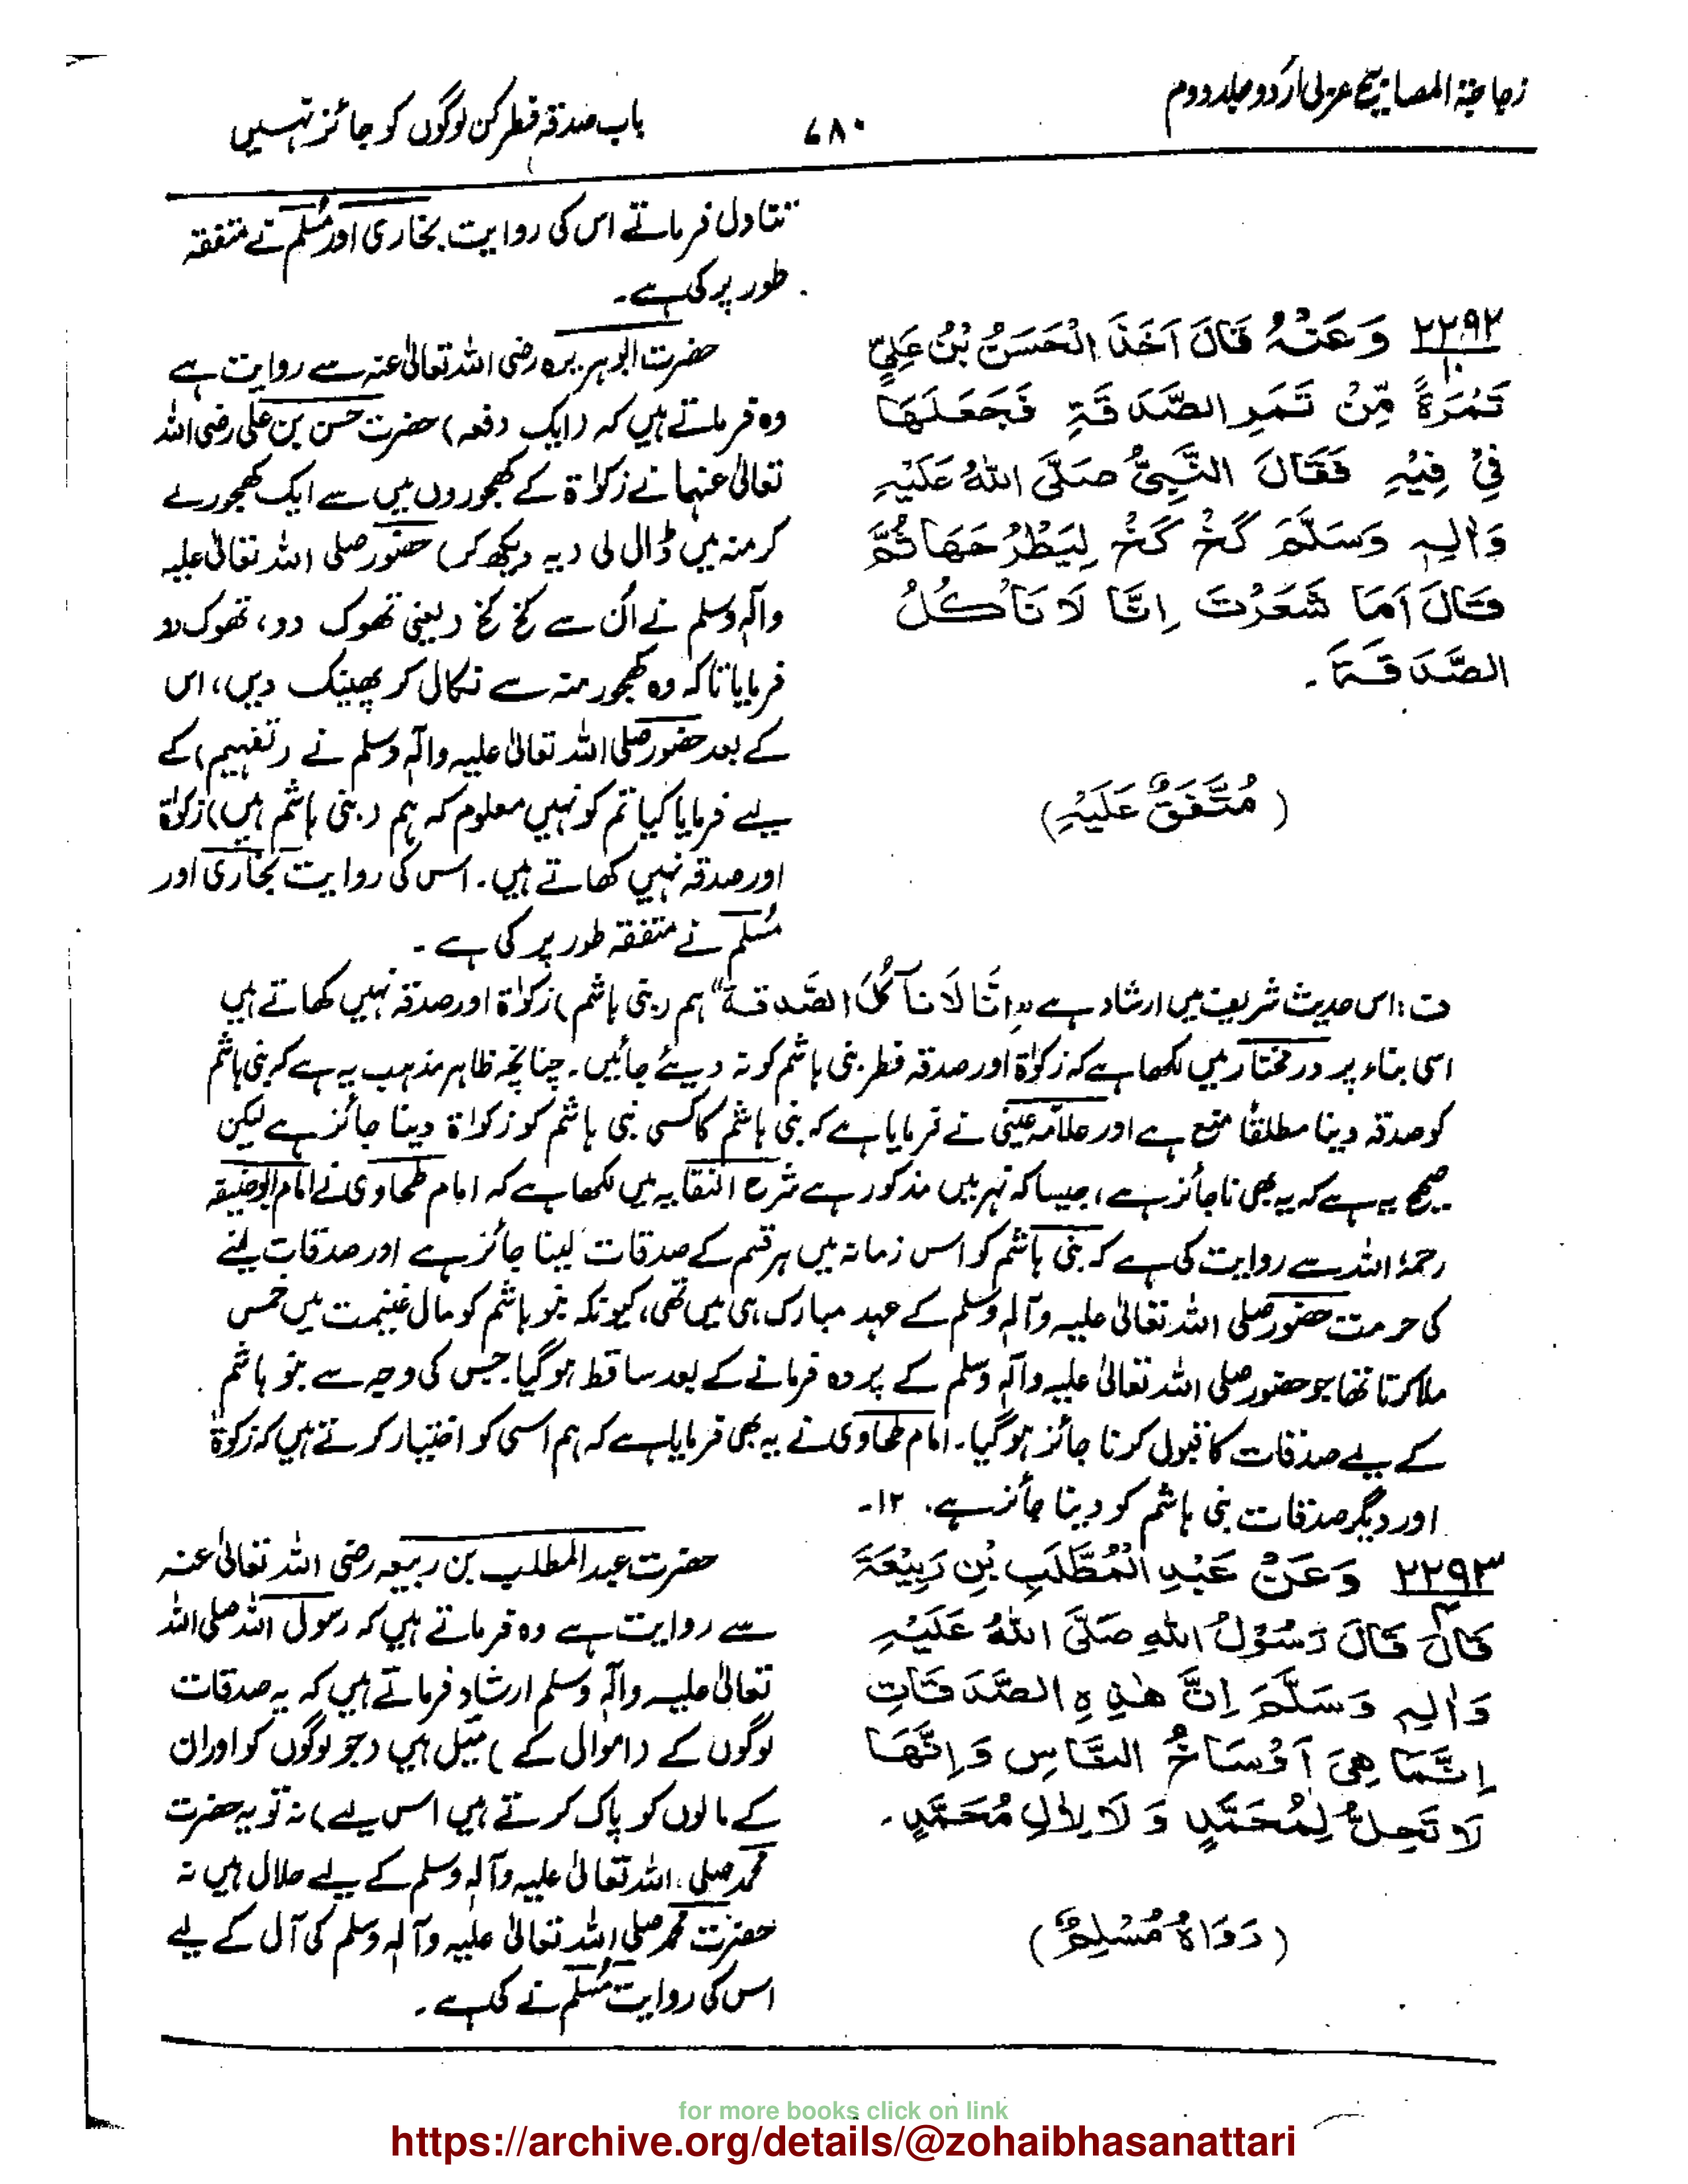 زجاجۃ المصابیح عربی اُردو جلد دوم
٦٨٠
باب صدقۂ فطر کن لوگوں کو جائز نہیں
تناول فرماتے اس کی روایت بخاری اور مُسلم نے متفقہ
طور پر کی ہے۔
٢٢٩٢ وَعَنْهُ قَالَ اَخَذَ الْحَسَنُ بْنُ عَلِيٍّ
تَمْرَةً مِّنْ تَمَرِ الصَّدَقَةِ فَجَعَلَهَا
فِيْ فِيْهِ فَقَالَ النَّبِيُّ صَلَّى اللهُ عَلَيْهِ
وَاٰلِهٖ وَسَلَّمَ كَخْ كَخْ لِيَطْرَحَهَا ثُمَّ
قَالَ اَمَا شَعَرْتَ اِنَّا لَا نَأْكُلُ
الصَّدَقَةَ۔
(مُتَّفَقٌ عَلَيْهِ)
حضرت ابوہریرہ رضی اللہ تعالیٰ عنہ سے روایت ہے
وہ فرماتے ہیں کہ (ایک دفعہ) حضرت حسن بن علی رضی اللہ
تعالیٰ عنہما نے زکوٰۃ کے کھجوروں میں سے ایک کھجور لے
کر منہ میں ڈال لی (یہ دیکھ کر) حضور صلی اللہ تعالیٰ علیہ
واٰلہٖ وسلم نے اُن سے کخ کخ (یعنی تھوک دو، تھوک دو
فرمایا تاکہ وہ کھجور منہ سے نکال کر پھینک دیں، اس
کے بعد حضور صلی اللہ تعالیٰ علیہ واٰلہٖ وسلم نے (تفہیم) کے
لیے فرمایا کیا تم کو نہیں معلوم کہ ہم (بنی ہاشم ہیں) زکوٰۃ
اور صدقہ نہیں کھاتے ہیں۔ اس کی روایت بخاری اور
مُسلم نے متفقہ طور پر کی ہے۔
ف: اس حدیث شریف میں ارشاد ہے "اِنَّا لَا نَأْكُلُ الصَّدَقَةَ" ہم (بنی ہاشم) زکوٰۃ اور صدقہ نہیں کھاتے ہیں
اسی بناء پر در مختار میں لکھا ہے کہ زکوٰۃ اور صدقہ فطر بنی ہاشم کو نہ دیئے جائیں۔ چنانچہ ظاہر مذہب یہ ہے کہ بنی ہاشم
کو صدقہ دینا مطلقًا منع ہے اور علامہ عینی نے فرمایا ہے کہ بنی ہاشم کا کسی بنی ہاشم کو زکوٰۃ دینا جائز ہے لیکن
صحیح یہ ہے کہ یہ بھی ناجائز ہے، جیسا کہ نہر میں مذکور ہے شرح النقایہ میں لکھا ہے کہ امام طحاوی نے امام ابوحنیفہ
رحمۃ اللہ سے روایت کی ہے کہ بنی ہاشم کو اس زمانہ میں ہر قسم کے صدقات لینا جائز ہے اور صدقات لینے
کی حرمت حضور صلی اللہ تعالیٰ علیہ وآلہٖ وسلم کے عہد مبارک ہی میں تھی، کیونکہ بنو ہاشم کو مال غنیمت میں خمس
ملا کرتا تھا جو حضور صلی اللہ تعالیٰ علیہ وآلہٖ وسلم کے پردہ فرمانے کے بعد ساقط ہو گیا۔ جس کی وجہ سے بنو ہاشم
کے لیے صدقات کا قبول کرنا جائز ہو گیا۔ امام طحاوی نے یہ بھی فرمایا ہے کہ ہم اسی کو اختیار کرتے ہیں کہ زکوٰۃ
اور دیگر صدقات بنی ہاشم کو دینا جائز ہے۔ ١٢۔
٢٢٩٣ وَعَنْ عَبْدِ الْمُطَّلَبِ بْنِ رَبِيْعَةَ
قَالَ قَالَ رَسُوْلُ اللهِ صَلَّى اللهُ عَلَيْهِ
وَاٰلِهٖ وَسَلَّمَ اِنَّ هٰذِهِ الصَّدَقَاتِ
اِنَّمَا هِيَ اَوْسَاخُ النَّاسِ وَاِنَّهَا
لَا تَحِلُّ لِمُحَمَّدٍ وَلَا لِاٰلِ مُحَمَّدٍ۔
(رَوَاهُ مُسْلِمٌ)
حضرت عبدالمطلب بن ربیعہ رضی اللہ تعالیٰ عنہ
سے روایت ہے وہ فرماتے ہیں کہ رسول اللہ صلی اللہ
تعالیٰ علیہ واٰلہٖ وسلم ارشاد فرماتے ہیں کہ یہ صدقات
لوگوں کے (اموال کے) میل ہیں (جو لوگوں کو اور ان
کے مالوں کو پاک کرتے ہیں اس لیے) نہ تو یہ حضرت
محمد صلی اللہ تعالیٰ علیہ وآلہٖ وسلم کے لیے حلال ہیں نہ
حضرت محمد صلی اللہ تعالیٰ علیہ وآلہٖ وسلم کی آل کے لیے
اس کی روایت مُسلم نے کی ہے۔
for more books click on link
https://archive.org/details/@zohaibhasanattari